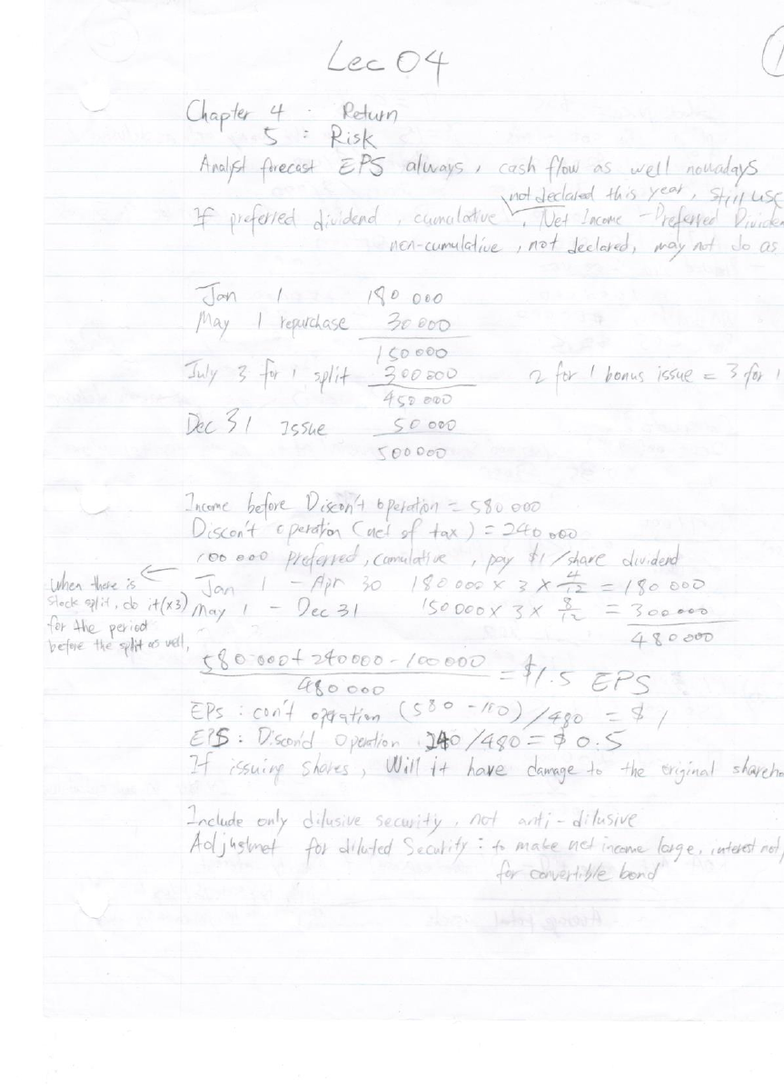 Lec 04
Chapter 4 : Return
5 : Risk
Analyst forecast EPS always, cash flow as well nowadays
not declared this year, still use
If preferred dividend, cumulative, Net Income - Preferred Dividen
non-cumulative, not declared, may not do as
Jan 1 180 000
May 1 repurchase 30 000
150 000
July 3 for 1 split 300 000 2 for 1 bonus issue = 3 for 1
450 000
Dec 31 Issue 50 000
500 000
Income before Discon't operation = 580 000
Discon't operation (net of tax) = 240 000
100 000 preferred, cumulative, pay $1/share dividend
When there is
stock split, do it (x3)
for the period
before the split as well,
Jan 1 - Apr 30 180 000 x 3 x 4/12 = 180 000
May 1 - Dec 31 150 000 x 3 x 8/12 = 300 000
480 000
580 000 + 240 000 - 100 000 / 480 000 = $1.5 EPS
EPS : con't operation (580 - 100) / 480 = $1
EPS : Discon'd Operation 240 / 480 = $0.5
If issuing shares, Will it have damage to the original shareho
Include only dilusive security, not anti-dilusive
Adjustmet for diluted Security : to make net income large, interest not
for convertible bond